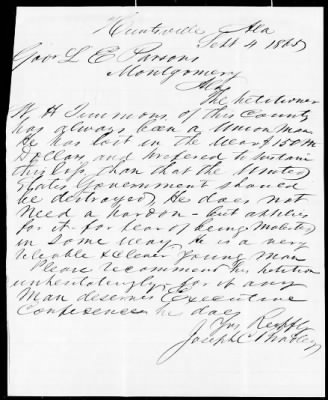 Huntsville, Ala
Sept 4 1865
Govr L E Parsons
Montgomery
Ala
The petitioner
W H Timmons of this County
has always been a Union man
He has lost in the War $150 M
Dollars and prefered to sustain
this loss than that the United
States Government should
be destroyed. He does not
need a pardon - but applies
for it - for fear of being molested
in some way He is a very
reliable & clever young man
Please recommend his petition
unhesitatingly, for if any
man deserves Executive
Confidence he does
Yrs Respfly
Joseph C Bradley